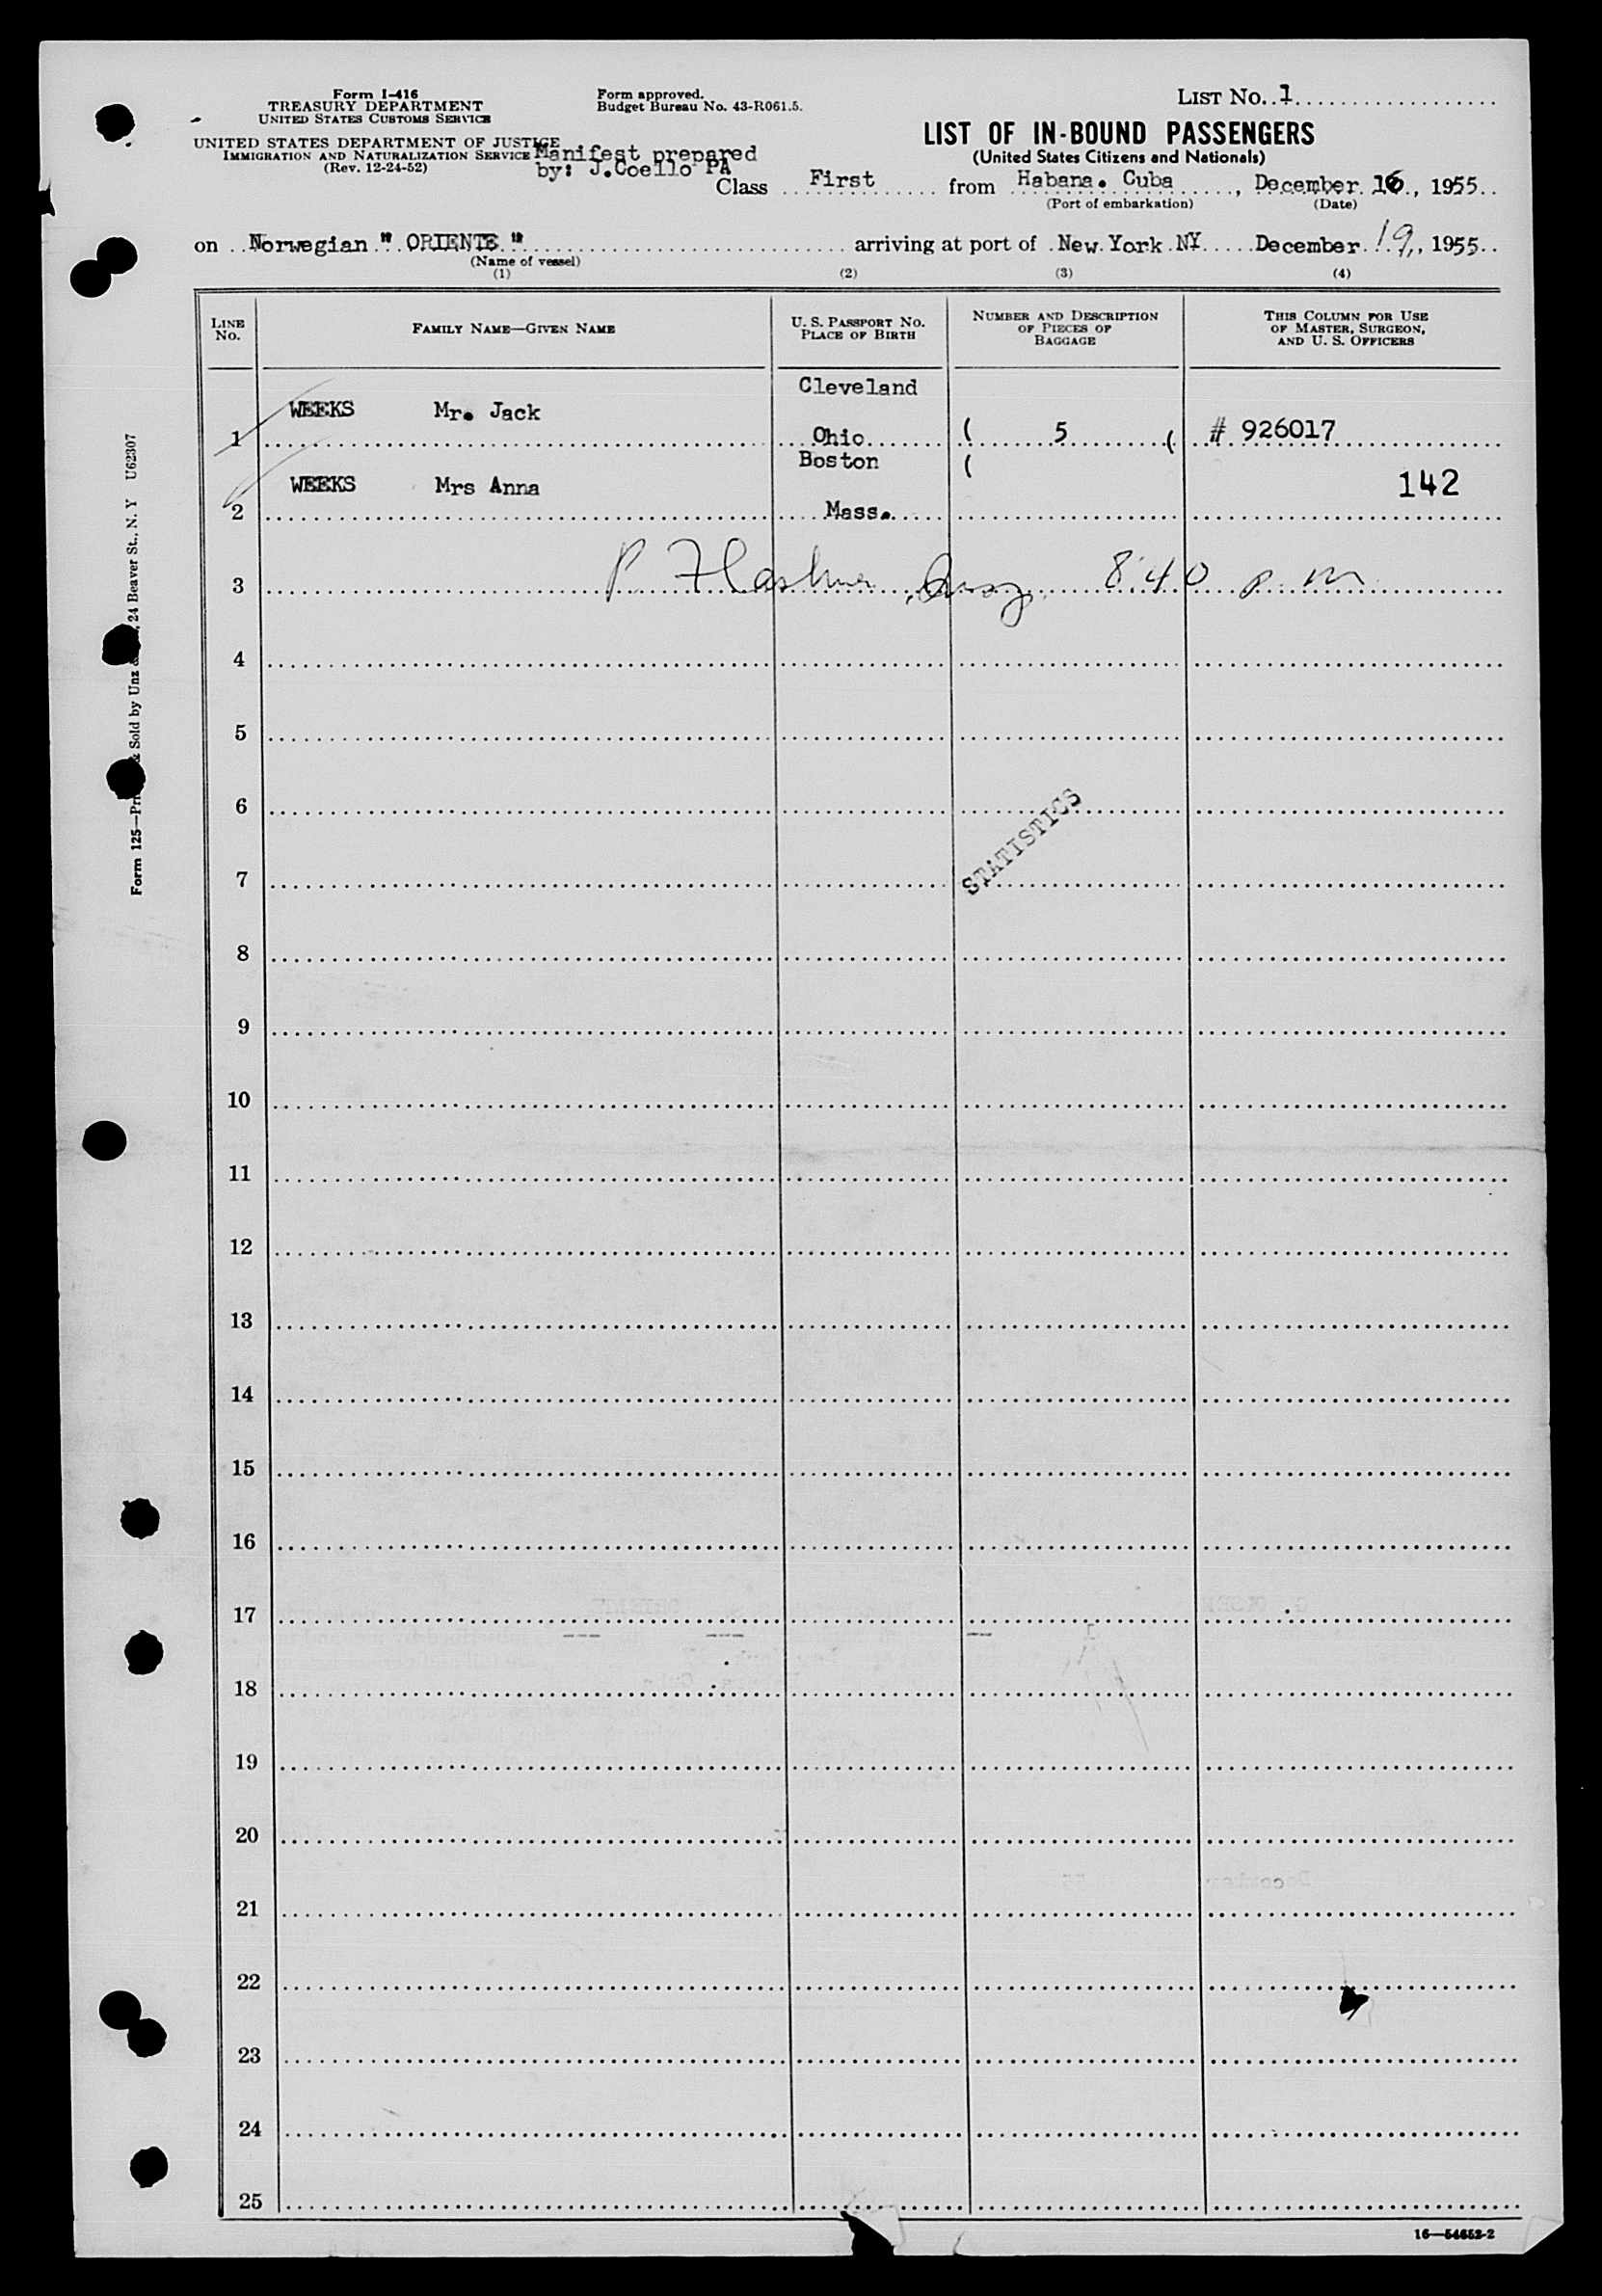 Form I-416
TREASURY DEPARTMENT
UNITED STATES CUSTOMS SERVICE
UNITED STATES DEPARTMENT OF JUSTICE
IMMIGRATION AND NATURALIZATION SERVICE
(Rev. 12-24-52)
Form approved.
Budget Bureau No. 43-R061.5.
Manifest prepared
by: J.Coello PA
LIST NO. 1
LIST OF IN-BOUND PASSENGERS
(United States Citizens and Nationals)
Class First from Habana. Cuba, December 16, 1955
(Port of embarkation) (Date)
on Norwegian " ORIENTE " arriving at port of New York NY December 19, 1955
(Name of vessel)
(1) (2) (3) (4)
LINE NO.
FAMILY NAME—GIVEN NAME
U. S. PASSPORT NO.
PLACE OF BIRTH
NUMBER AND DESCRIPTION
OF PIECES OF
BAGGAGE
THIS COLUMN FOR USE
OF MASTER, SURGEON,
AND U. S. OFFICERS
Cleveland
WEEKS Mr. Jack
1 Ohio ( 5 ( # 926017
Boston (
WEEKS Mrs Anna 142
2 Mass.
3 P 8:40 p.m
4
5
6
STATISTICS
7
8
9
10
11
12
13
14
15
16
17
18
19
20
21
22
23
24
25
16—54652-2
Form 125— & Sold by Unz 24 Beaver St., N. Y U62307